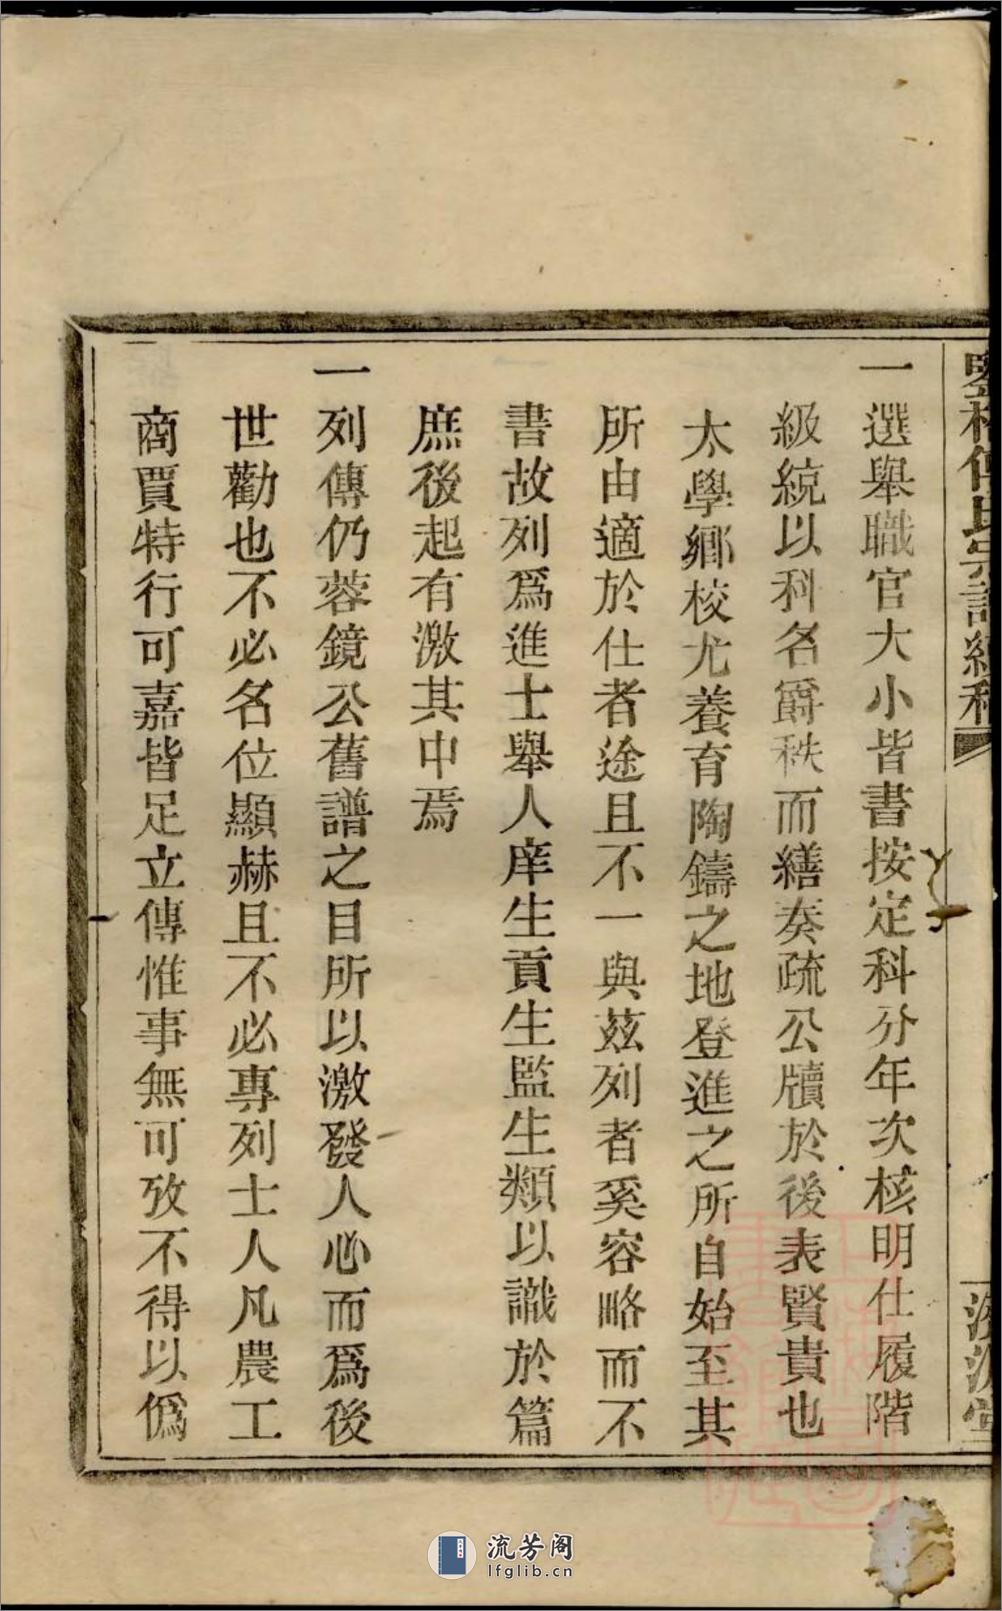 一選舉職官大小皆書按定科分年次核明仕履階
級統以科名爵秩而繕奏疏公牘於後表賢貴也
太學鄉校尤養育陶鑄之地登進之所自始至其
所由適於仕者途且不一與茲列者奚容略而不
書故列爲進士舉人庠生貢生監生類以識於篇
庶後起有激其中焉
一列傳仍蓉鏡公舊譜之目所以激發人心而爲後
世勸也不必名位顯赫且不必專列士人凡農工
商賈特行可嘉皆足立傳惟事無可攷不得以僞
流芳阁
lfglib.cn